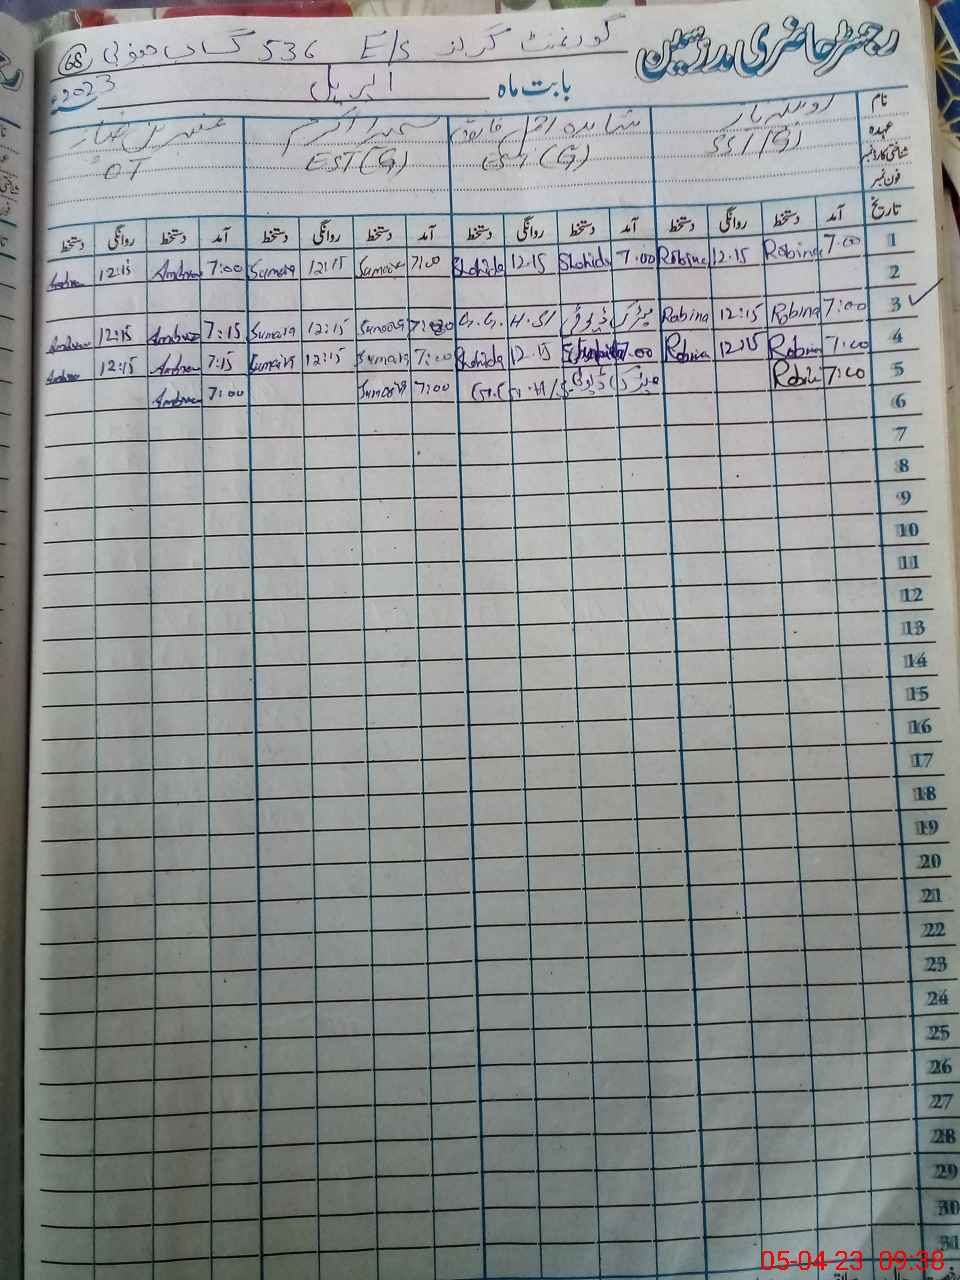 رجسٹر حاضری مدرسین
گورنمنٹ گرلز E/S 536 گ ب جنوبی 68
بابت ماہ اپریل 2023
نام روبینہ شاہدہ سمیرا اکرم عنبرین
عہدہ SST(G) EST(G) OT
شناختی کارڈ نمبر
فون نمبر
تاریخ آمد دستخط روانگی دستخط آمد دستخط روانگی دستخط آمد دستخط روانگی دستخط آمد دستخط روانگی دستخط
1 7.00 Robina 12.15 Robina 7.00 Shahida 12.15 Shahida 7:00 Sumaira 12:15 Sumaira 7:00 Ambreen 12:15 Ambreen
2
3 7:00 Robina 12:15 Robina میٹرک ڈیوٹی G.G.H.S/ 7:00 Sumaira 12:15 Sumaira 7:15 Ambreen 12:15 Ambreen
4 7:00 Robina 12:15 Robina 7.00 Shahida 12.15 Shahida 7:00 Sumaira 12:15 Sumaira 7:15 Ambreen 12:15 Ambreen
5 7:00 Robina میٹرک ڈیوٹی 7:00 Sumaira 7:00 Ambreen
6
7
8
9
10
11
12
13
14
15
16
17
18
19
20
21
22
23
24
25
26
27
28
29
30
31
05-04-23 09:38